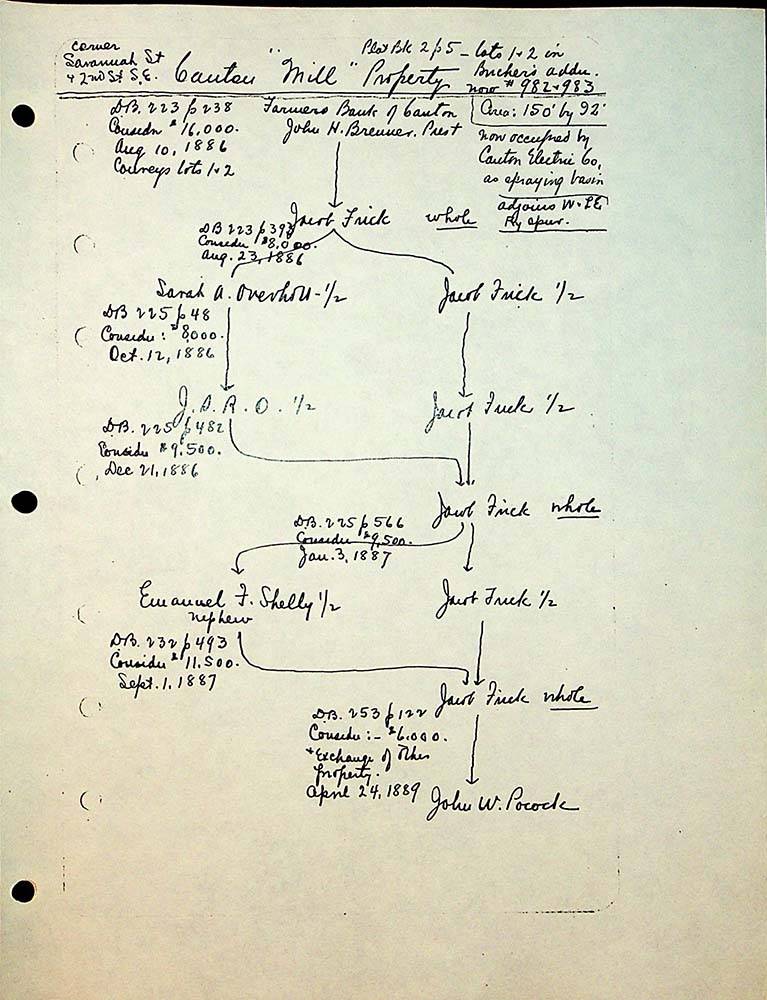 corner
Savannah St
+ 2nd St S.E.
Canton "Mill" Property
Plat Bk 2 p 5 – lots 1+2 in
Bucher's addn.
now # 982+983
D.B. 223 p 238
Considn $16,000.
Aug 10, 1886
Conveys lots 1+2
Farmers Bank of Canton
John H. Brenner, Prest
Area: 150' by 92'
now occupied by
Canton Electric Co,
as spraying basin
adjoins W.+L.E.
Ry spur.
Jacob Frick whole
DB 223 p 393
Considn $8,000.
Aug. 23, 1886
Sarah A. Overholt - 1/2
Jacob Frick 1/2
DB 225 p 48
Considn: $8,000.
Oct. 12, 1886
J. S. R. O. 1/2
Jacob Frick 1/2
D.B. 225 p 482
Considn $9,500.
Dec 21, 1886
Jacob Frick whole
D.B. 225 p 566
Considn $9,500.
Jan. 3, 1887
Emanuel F. Shelly 1/2
nephew
Jacob Frick 1/2
D.B. 232 p 493
Considn $11,500.
Sept. 1, 1887
Jacob Frick whole
D.B. 253 p 122
Considn:– $6,000.
+ Exchange of other
property.
April 24, 1889
John W. Pocock